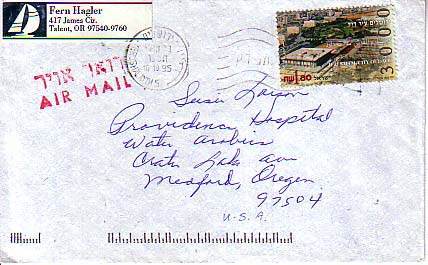 Fern Hagler
417 James Cir.
Talent, OR 97540-9760
דואר אויר
AIR MAIL
ישראל
1.80
3000
Susie Larson
Providence Hospital
Water Arobics
Crater Lake ave
Medford, Oregon
97504
U.S.A.